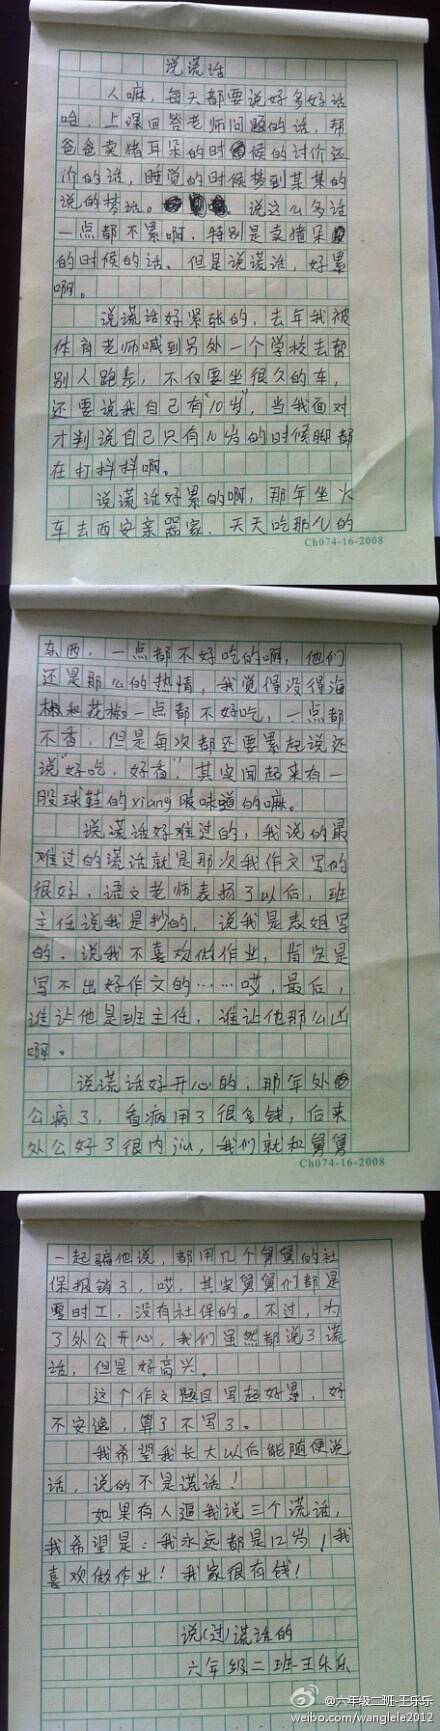 说谎话
人嘛，每天都要说好多好话
哈，上课回答老师问题的话，帮
爸爸卖猪耳朵的时候的讨价还
价的话，睡觉的时候梦到某某的
说的梦话。说这么多话
一点都不累啊，特别是卖猪朵
的时候的话。但是说谎话，好累
啊。
说谎话好紧张的，去年我被
体育老师喊到另外一个学校去帮
别人跑步，不仅要坐很久的车，
还要说我自己有“10岁”，当我面对
才判说自己只有10岁的时候脚都
在打抖抖啊。
说谎话好累的啊，那年坐火
车去西安亲器家，天天吃那儿的
Ch074-16-2008
东西，一点都不好吃的嘛，他们
还是那么的热情，我觉得没得海
椒和花椒一点都不好吃，一点都
不香，但是每次都还要累起说还
说“好吃，好香”其实闻起来有一
股球鞋的xiang味道的嘛。
说谎话好难过的，我说的最
难过的谎话就是那次我作文写的
很好，语文老师表扬了以后，班
主任说我是抄的，说我是表姐写
的，说我不喜欢做作业，肯定是
写不出好作文的……哎，最后，
谁让他是班主任，谁让他那么凶
啊。
说谎话好开心的，那年外
公病了，看病用了很多钱，后来
外公好了很内jiu，我们就和舅舅
Ch074-16-2008
一起骗他说，都用几个舅舅的社
保报销了，哎，其实舅舅们都是
零时工，没有社保的。不过，为
了外公开心，我们虽然都说了谎
话，但是好高兴。
这个作文题目写起好累，好
不安逸，算了不写了。
我希望我长大以后能随便说
话，说的不是谎话！
如果有人逼我说三个谎话，
我希望是：我永远都是12岁！我
喜欢做作业！我家很有钱！
说（过）谎话的
六年级二班-王乐乐
@六年级二班-王乐乐
weibo.com/wanglele2012